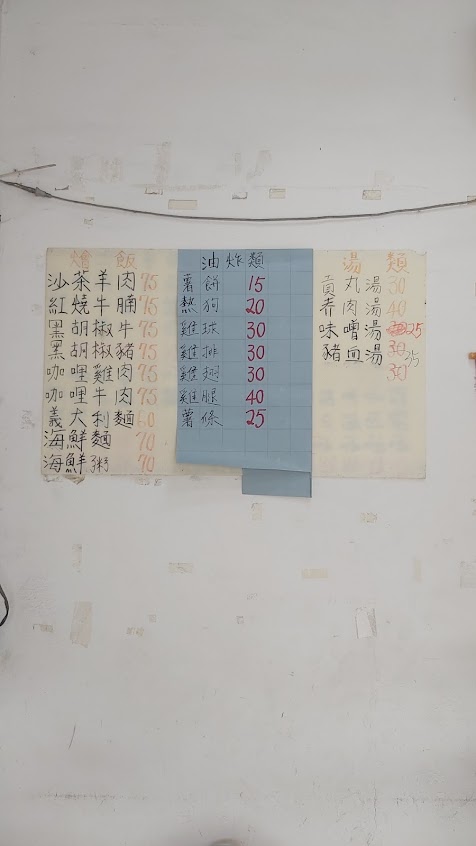 燴飯
沙茶羊肉 75
紅燒牛腩 75
黑胡椒牛 75
黑胡椒豬 75
咖哩雞肉 75
咖哩牛肉 75
義大利麵 60
海鮮麵 70
海鮮粥 70
油炸類
薯餅 15
熱狗 20
雞球 30
雞排 30
雞翅 30
雞腿 40
薯條 25
湯類
貢丸湯 30
肉湯 40
味噌湯 25
豬血湯 30 25
30